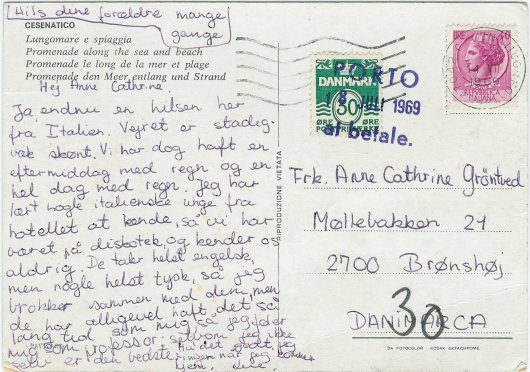 Hils dine forældre mange
gange
CESENATICO
Lungomare e spiaggia
Promenade along the sea and beach
Promenade le long de la mer et plage
Promenade den Meer entlang und Strand
Hej Anne Cathrine.
Ja, endnu en hilsen her
fra Italien. Vejret er stadig-
væk skønt. Vi har dog haft en
eftermiddag med regn og en
hel dag med regn. Jeg har
lært nogle italienske unge fra
hotellet at kende, så vi har
været på diskotek, og kender o
aldrig. De taler helst engelsk,
men nogle helst tysk, så jeg
brokker sammen med dem, men
de har alligevel haft det så
lang tid som mig så jeg føler
mig som professor, selvom jeg ikke
selv er den bedste. Ha' det godt, jeg
ringer når jeg kommer
hjem.
RIPRODUZIONE VIETATA
PORTO
8 JULI 1969
at betale.
DANMARK
30
ØRE ØRE
POSTFRIMÆRKE
40
REPUBBLICA
ITALIANA
1969
Frk. Anne Cathrine Grøntved
Møllebakken 21
2700 Brønshøj
30
DANIMARCA
DA FOTOCOLOR KODAK EKTACHROME